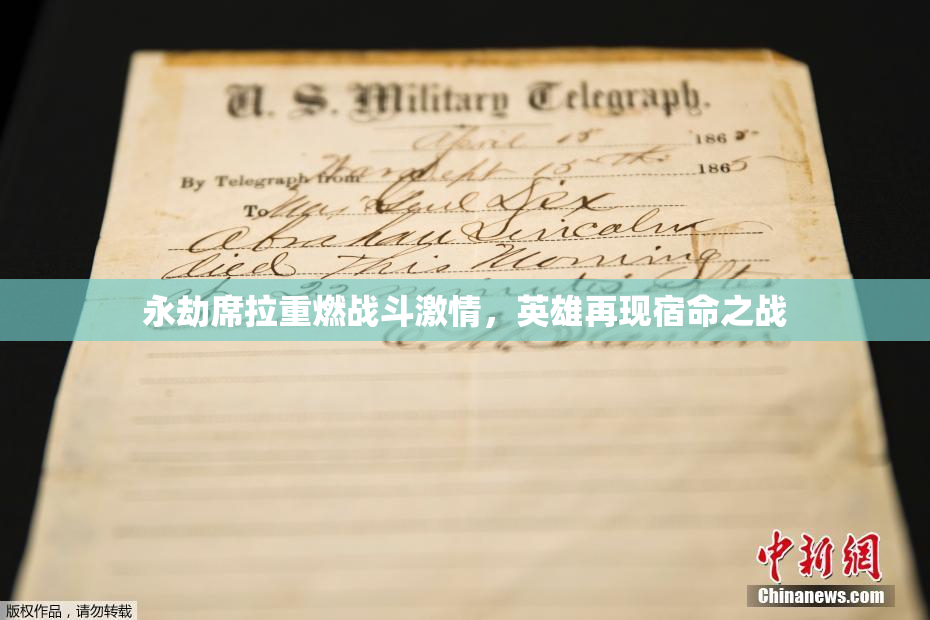 U. S. Military Telegraph.
April 15 1865
By Telegraph from War Dept 15th 1865
To Maj Genl Dix
Abraham Lincoln
died This Morning
at 22 minutes after
永劫席拉重燃战斗激情，英雄再现宿命之战
E. M. Stanton
中新网
Chinanews.com
版权作品，请勿转载